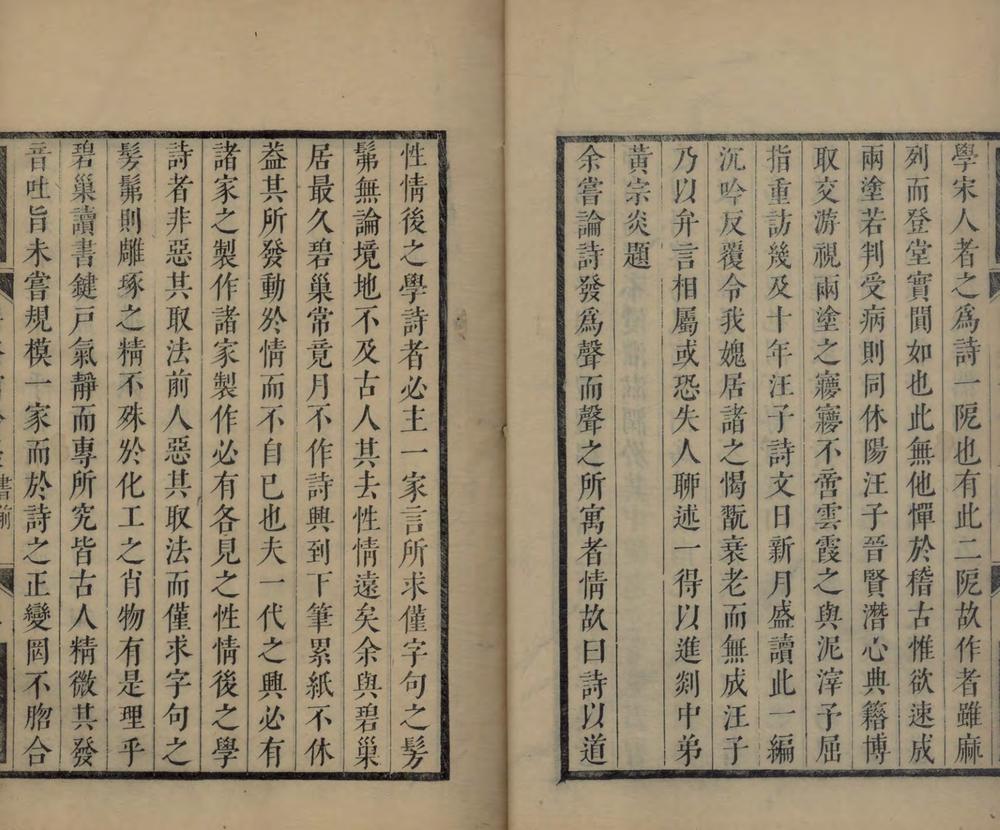 學宋人者之爲詩一阨也有此二阨故作者雖麻
列而登堂實閴如也此無他憚於稽古惟欲速成
兩塗若判受病則同休陽汪子晉賢潛心典籍博
取交游視兩塗之寱寱不啻雲霞之與泥滓子屈
指重訪幾及十年汪子詩文日新月盛讀此一編
沉吟反覆令我媿居諸之愒翫衰老而無成汪子
乃以弁言相屬或恐失人聊述一得以進剡中弟
黃宗炎題
余嘗論詩發爲聲而聲之所寓者情故曰詩以道
性情後之學詩者必主一家言所求僅字句之髣
髴無論境地不及古人其去性情遠矣余與碧巢
居最久碧巢常竟月不作詩興到下筆累紙不休
葢其所發動於情而不自已也夫一代之興必有
諸家之製作諸家製作必有各見之性情後之學
詩者非惡其取法前人惡其取法而僅求字句之
髣髴則雕琢之精不殊於化工之肖物有是理乎
碧巢讀書鍵戸氣靜而專所究皆古人精微其發
音吐旨未嘗規模一家而於詩之正變罔不脗合
書前